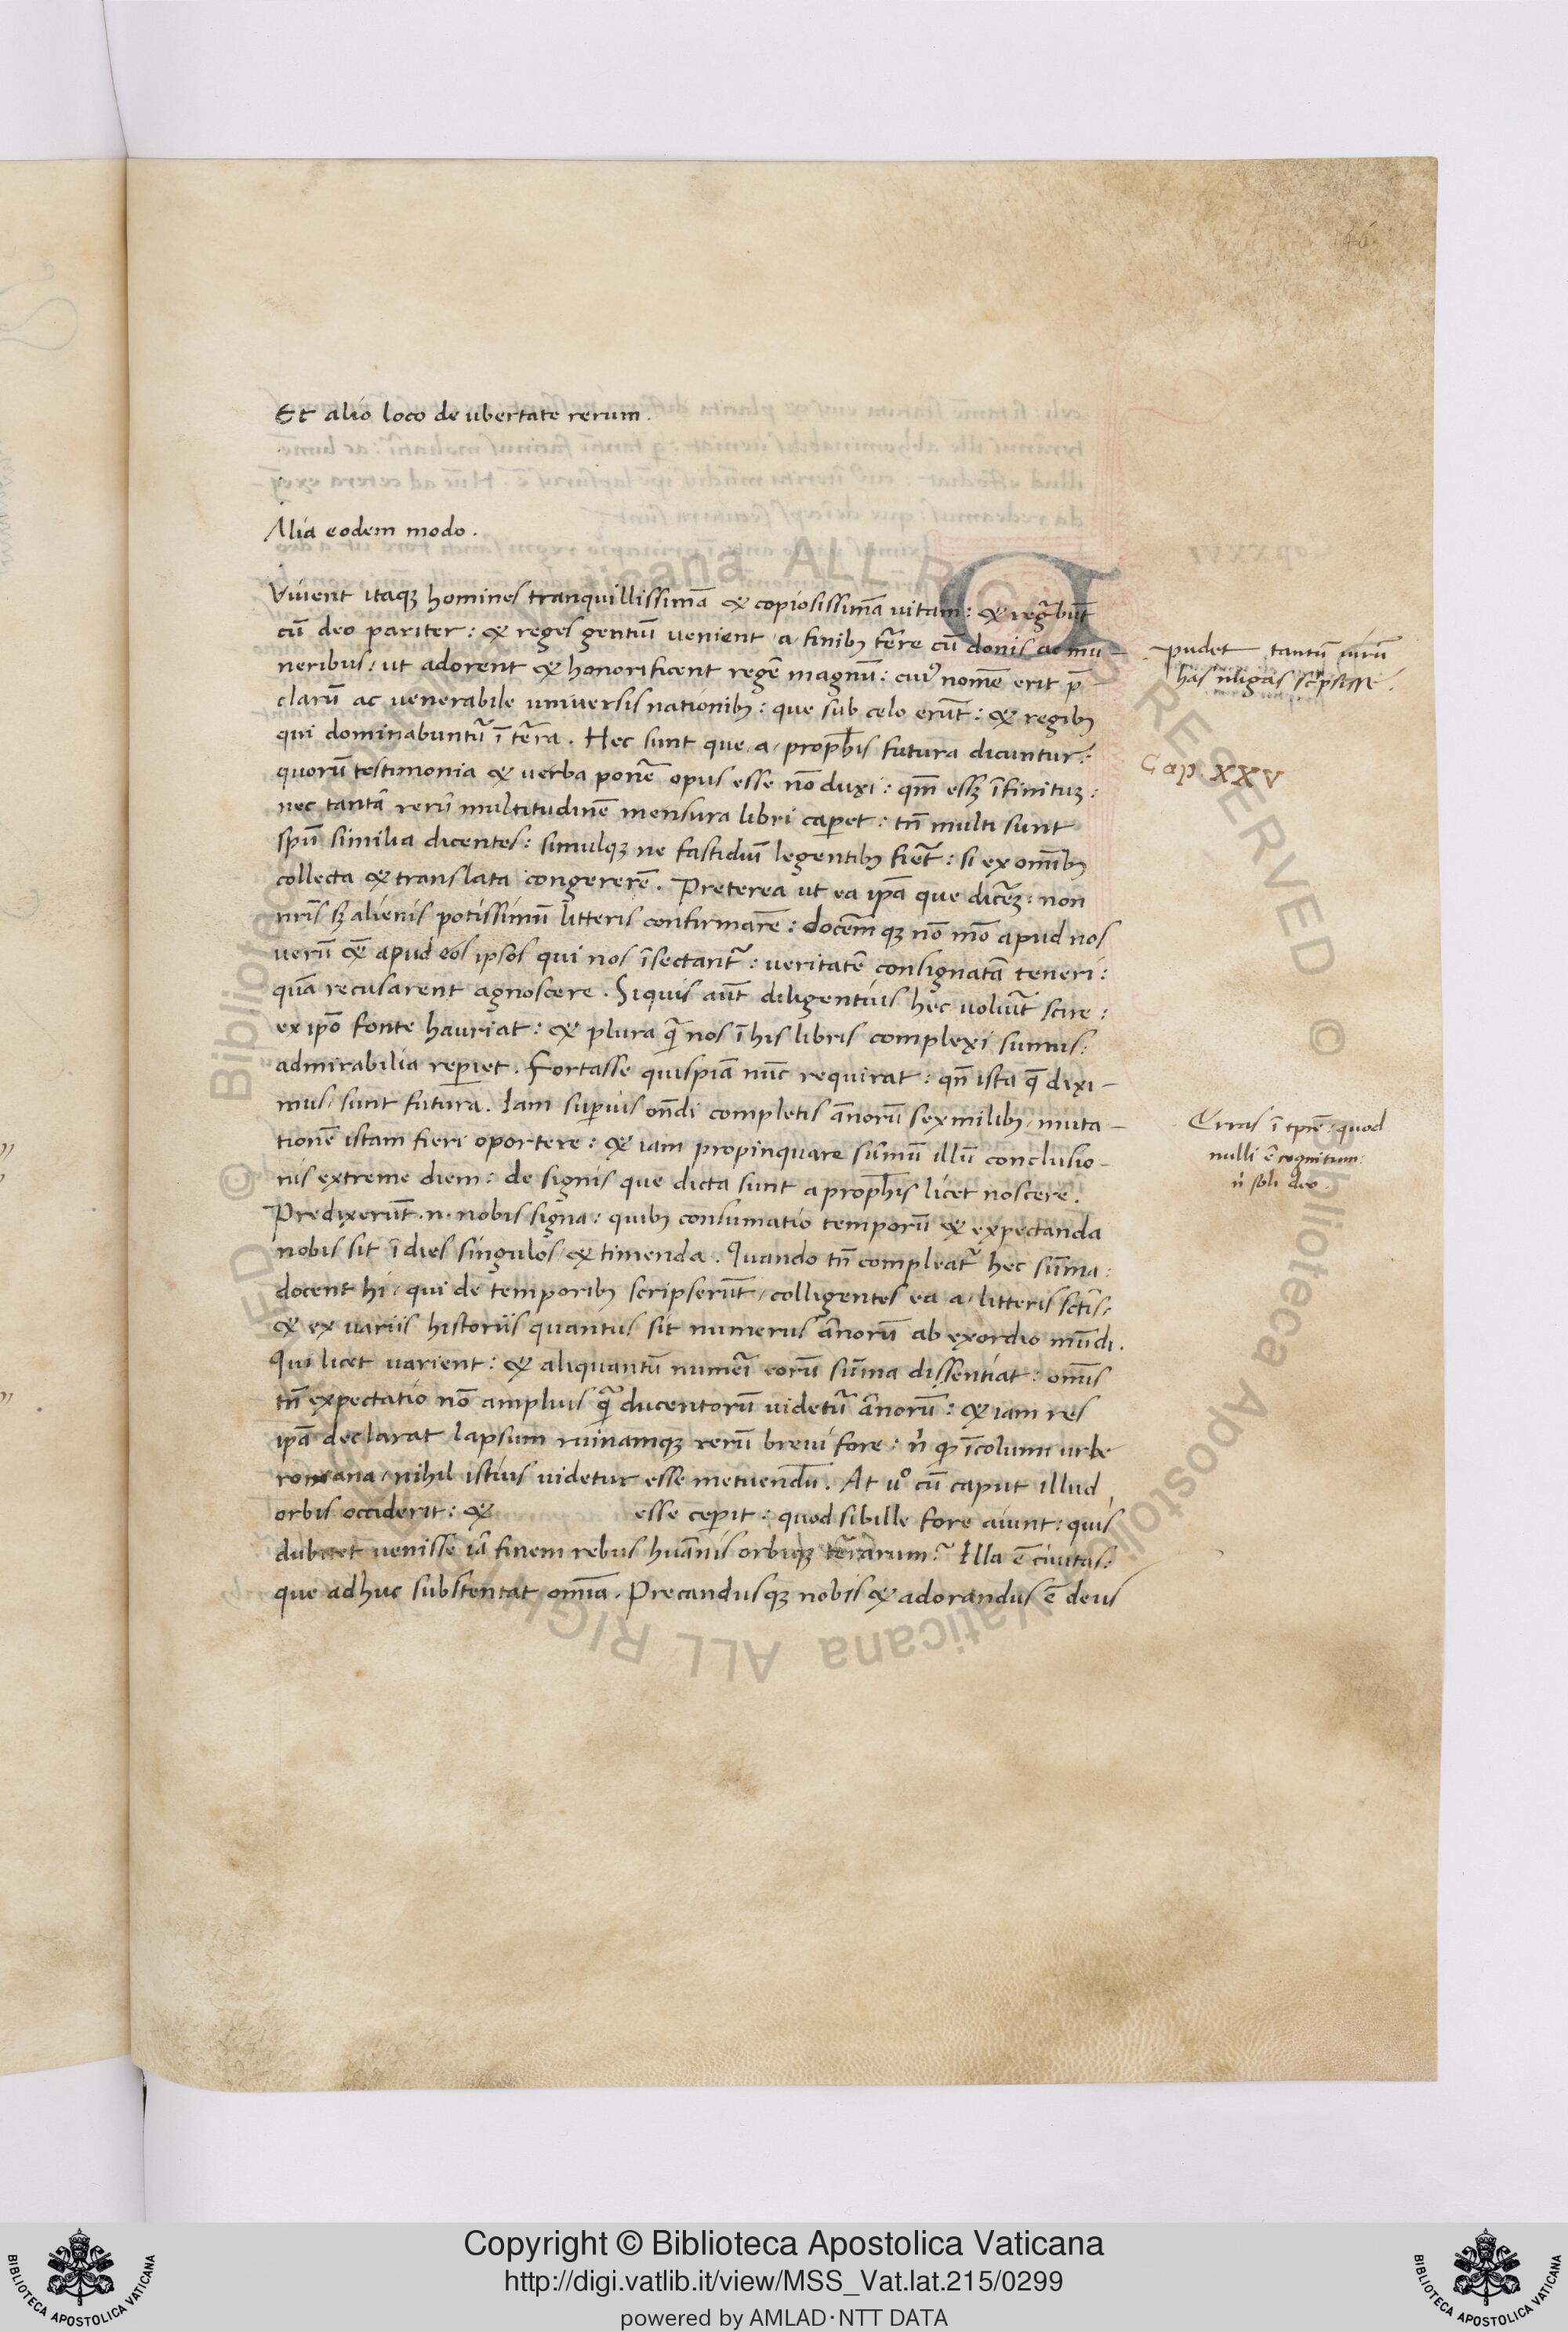 Et alio loco de ubertate rerum.
Alia eodem modo.
Vivient itaqꝫ homines tranquillissimā & copiosissimā vitam: & regnābūt
cū deo pariter: & reges gentiū venient a finibꝫ terre cū donis ac mu-
neribus: ut adorent & honorificent regē magnū: cuiꝰ nomē erit p̄
clarū ac venerabile universis nationibꝫ: que sub celo erūt: & regibꝫ
qui dominabuntur ī terra. Hec sunt que a prophis futura dicuntur:
quorū testimonia & verba ponē opus esse nō duxi: qm̄ essꝫ īfinituꝫ:
nec tantā rerū multitudinē mensura libri caperet: tn̄ multi sunt
spū similia dicentes: simulqꝫ ne fastidiū legentibꝫ fieret: si ex omībꝫ
collecta & translata congererē. Preterea ut ea ipā que diceꝫ: non
nris sꝫ alienis potissimū litteris confirmarē: docēm qꝫ nō mō apud nos
verū & apud eos ipsos qui nos īsectant: veritatē consignatā teneri:
quā recusarent agnoscere. Siquis aūt diligentius hec voluīt scire:
ex ipō fonte hauriat: & plura q̄ nos ī his libris complexi sumus:
admirabilia reperiet. Fortasse quispiā nūc requirat: qn̄ ista q̄ dixi-
mus sunt futura. Iam superius on̄di completis annorū sex milibꝫ muta-
tionē istam fieri oportere: & iam propinquare summū illū conclusio-
nis extreme diem: de signis que dicta sunt a prophis licet noscere.
Predixerūt .n. nobis signa: quibꝫ consumatio temporū & expectanda
nobis sit ī dies singulos & timenda. Quando tn̄ compleat hec sūma:
docent hi qui de temporibꝫ scripserūt colligentes ea a litteris sctīs:
& ex variis historiis quantus sit numerus annorū ab exordio mūdi.
Qui licet varient: & aliquantū numeri eorū sūma dissentiat: omīs
tn̄ expectatio nō amplius q̄ ducentorū videtur annorū: & iam res
ipā declarat lapsum ruinamqꝫ rerū brevi fore: n̄ qꝫ īcolumi urbe
romana nihil istius videtur esse metuendū. At uº cū caput illud
orbis occiderit: & esse ceperit: quod sibille fore aiunt: quis
dubitet venisse iā finem rebus huānis orbiqꝫ terrarum? Illa ē civitas:
que adhuc substentat omīa. Precandusqꝫ nobis & adorandus ē deus
pudet tantū virū
has nugas scripsisse.
Cap. XXV
Erras ī tpre: quod
nulli ē cognitum:
n̄ soli deo.
Copyright © Biblioteca Apostolica Vaticana
http://digi.vatlib.it/view/MSS_Vat.lat.215/0299
powered by AMLAD·NTT DATA
BIBLIOTECA APOSTOLICA VATICANA
BIBLIOTECA APOSTOLICA VATICANA